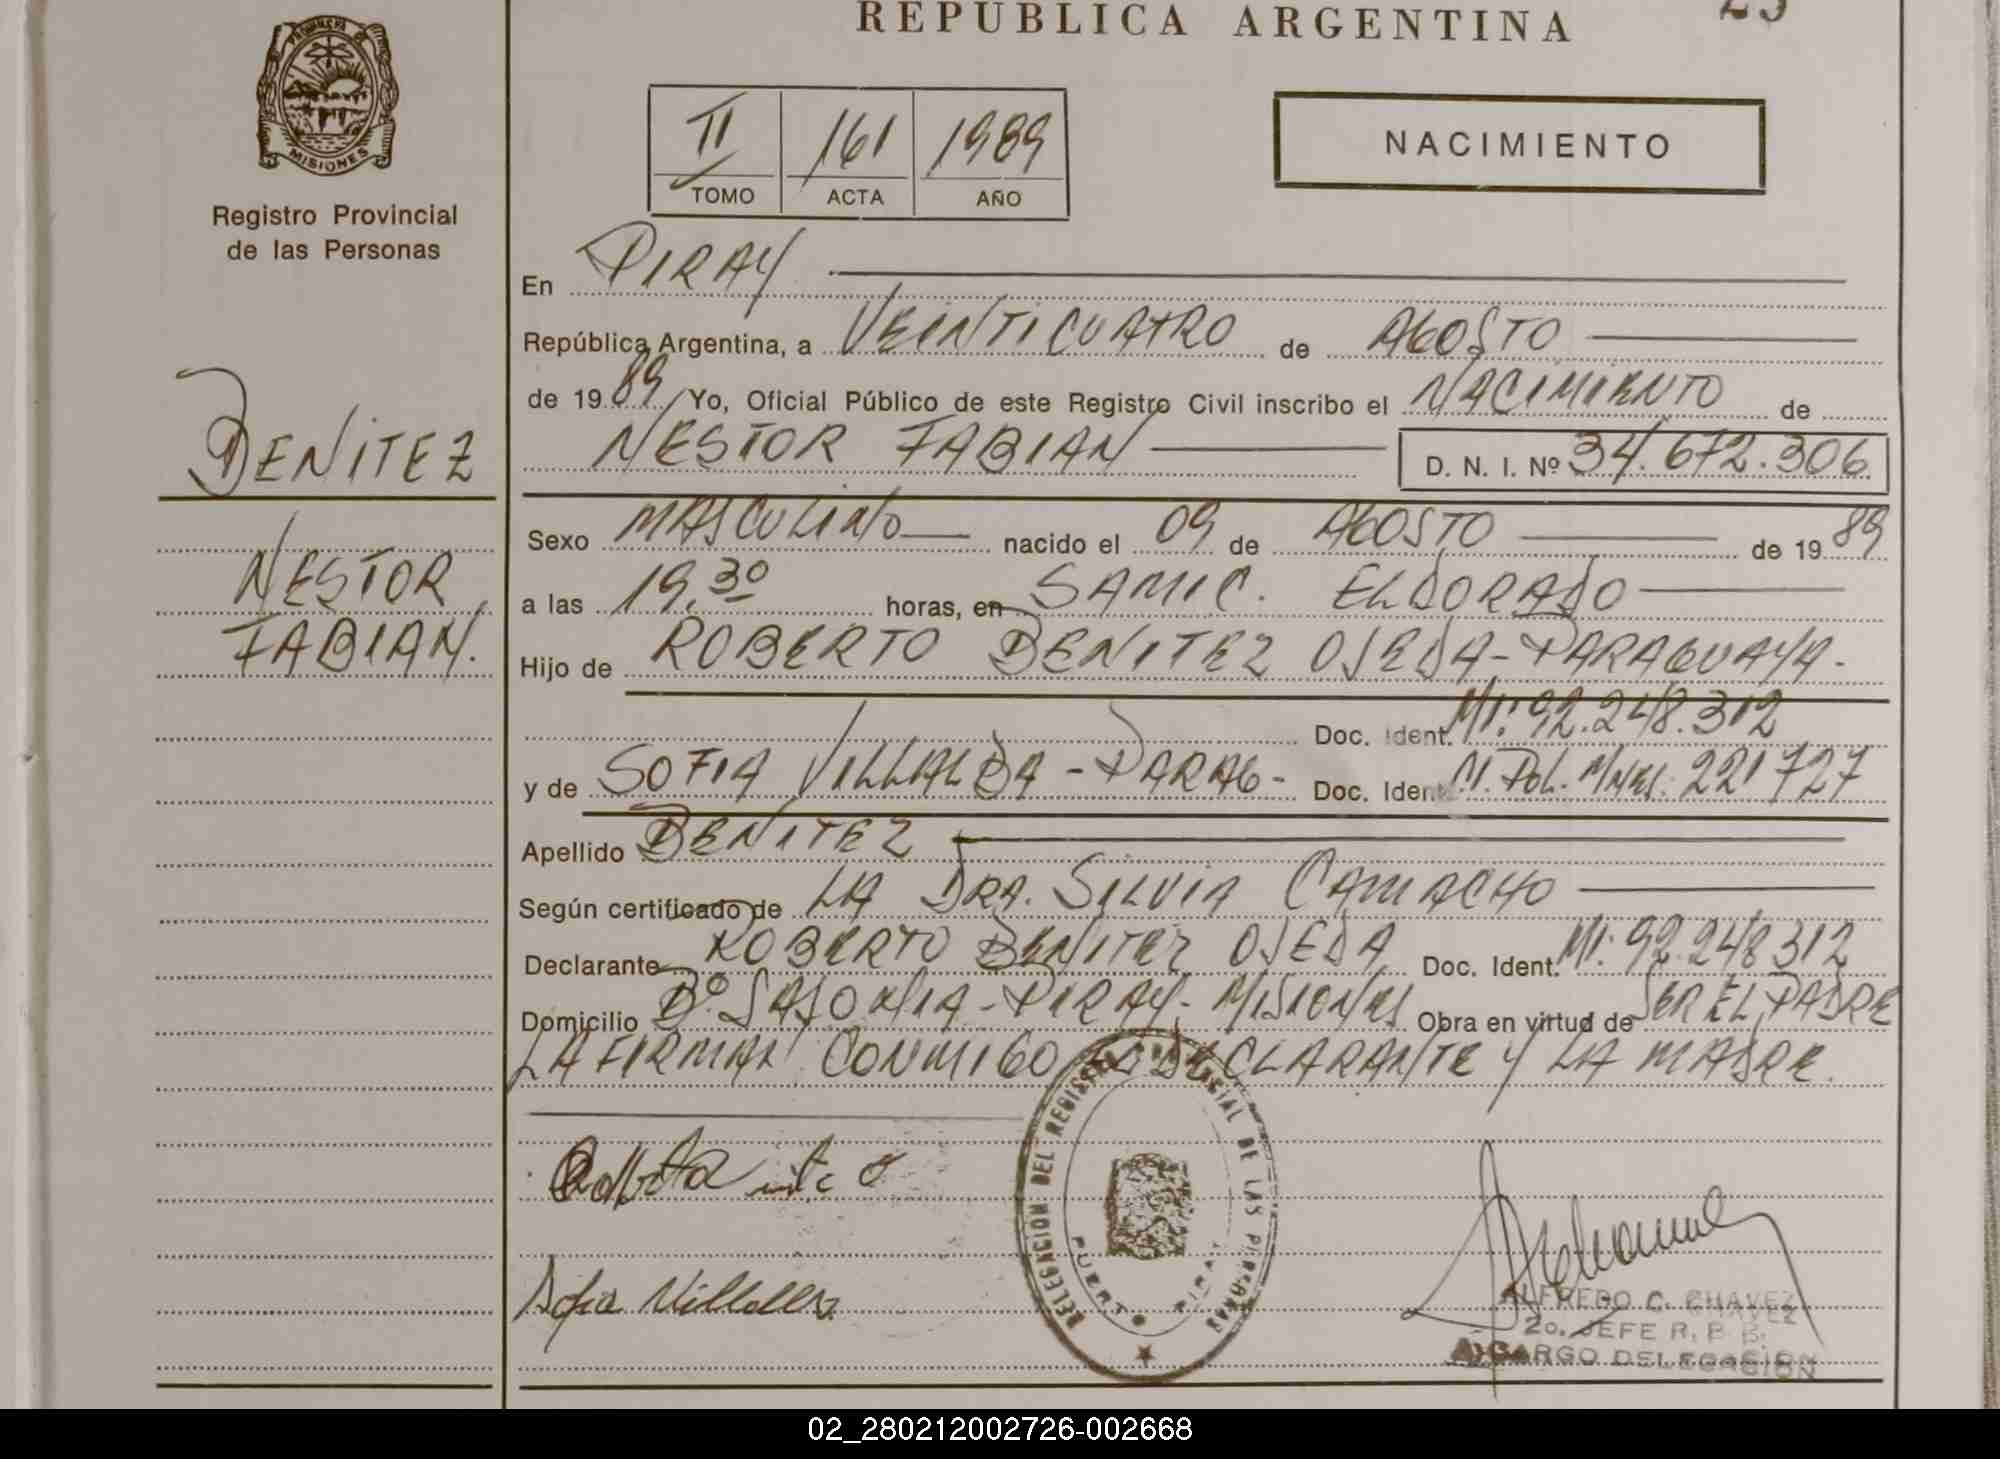 REPUBLICA ARGENTINA
PROVINCIA DE
MISIONES
Registro Provincial
de las Personas
II 161 1989
TOMO ACTA AÑO
NACIMIENTO
En PIRAY
República Argentina, a VEINTICUATRO de AGOSTO
de 1989 Yo, Oficial Público de este Registro Civil inscribo el NACIMIENTO de
NESTOR FABIAN D. N. I. Nº 34.672.306
BENITEZ
NESTOR
FABIAN.
Sexo MASCULINO nacido el 09 de AGOSTO de 1989
a las 19,30 horas, en SAMIC. ELDORADO
Hijo de ROBERTO BENITEZ OJEDA-PARAGUAYA-
Doc. Ident. MI: 92.248.312
y de SOFIA VILLALBA-PARAG- Doc. Ident. CI. Pol. Mnes. 221727
Apellido BENITEZ
Según certificado de LA DRA. SILVIA CAMACHO
Declarante ROBERTO BENITEZ OJEDA Doc. Ident. MI: 92.248312
Domicilio Bº. SAJONIA-PIRAY-MISIONES Obra en virtud de SER EL PADRE
LA FIRMAN CONMIGO EL DECLARANTE Y LA MADRE.
DELEGACION DEL REGISTRO PROVINCIAL DE LAS PERSONAS
PUERTO PIRAY
Sofia Villalba
ALFREDO C. CHAVEZ
2o. JEFE R. P. P.
A CARGO DELEGACION
02_280212002726-002668